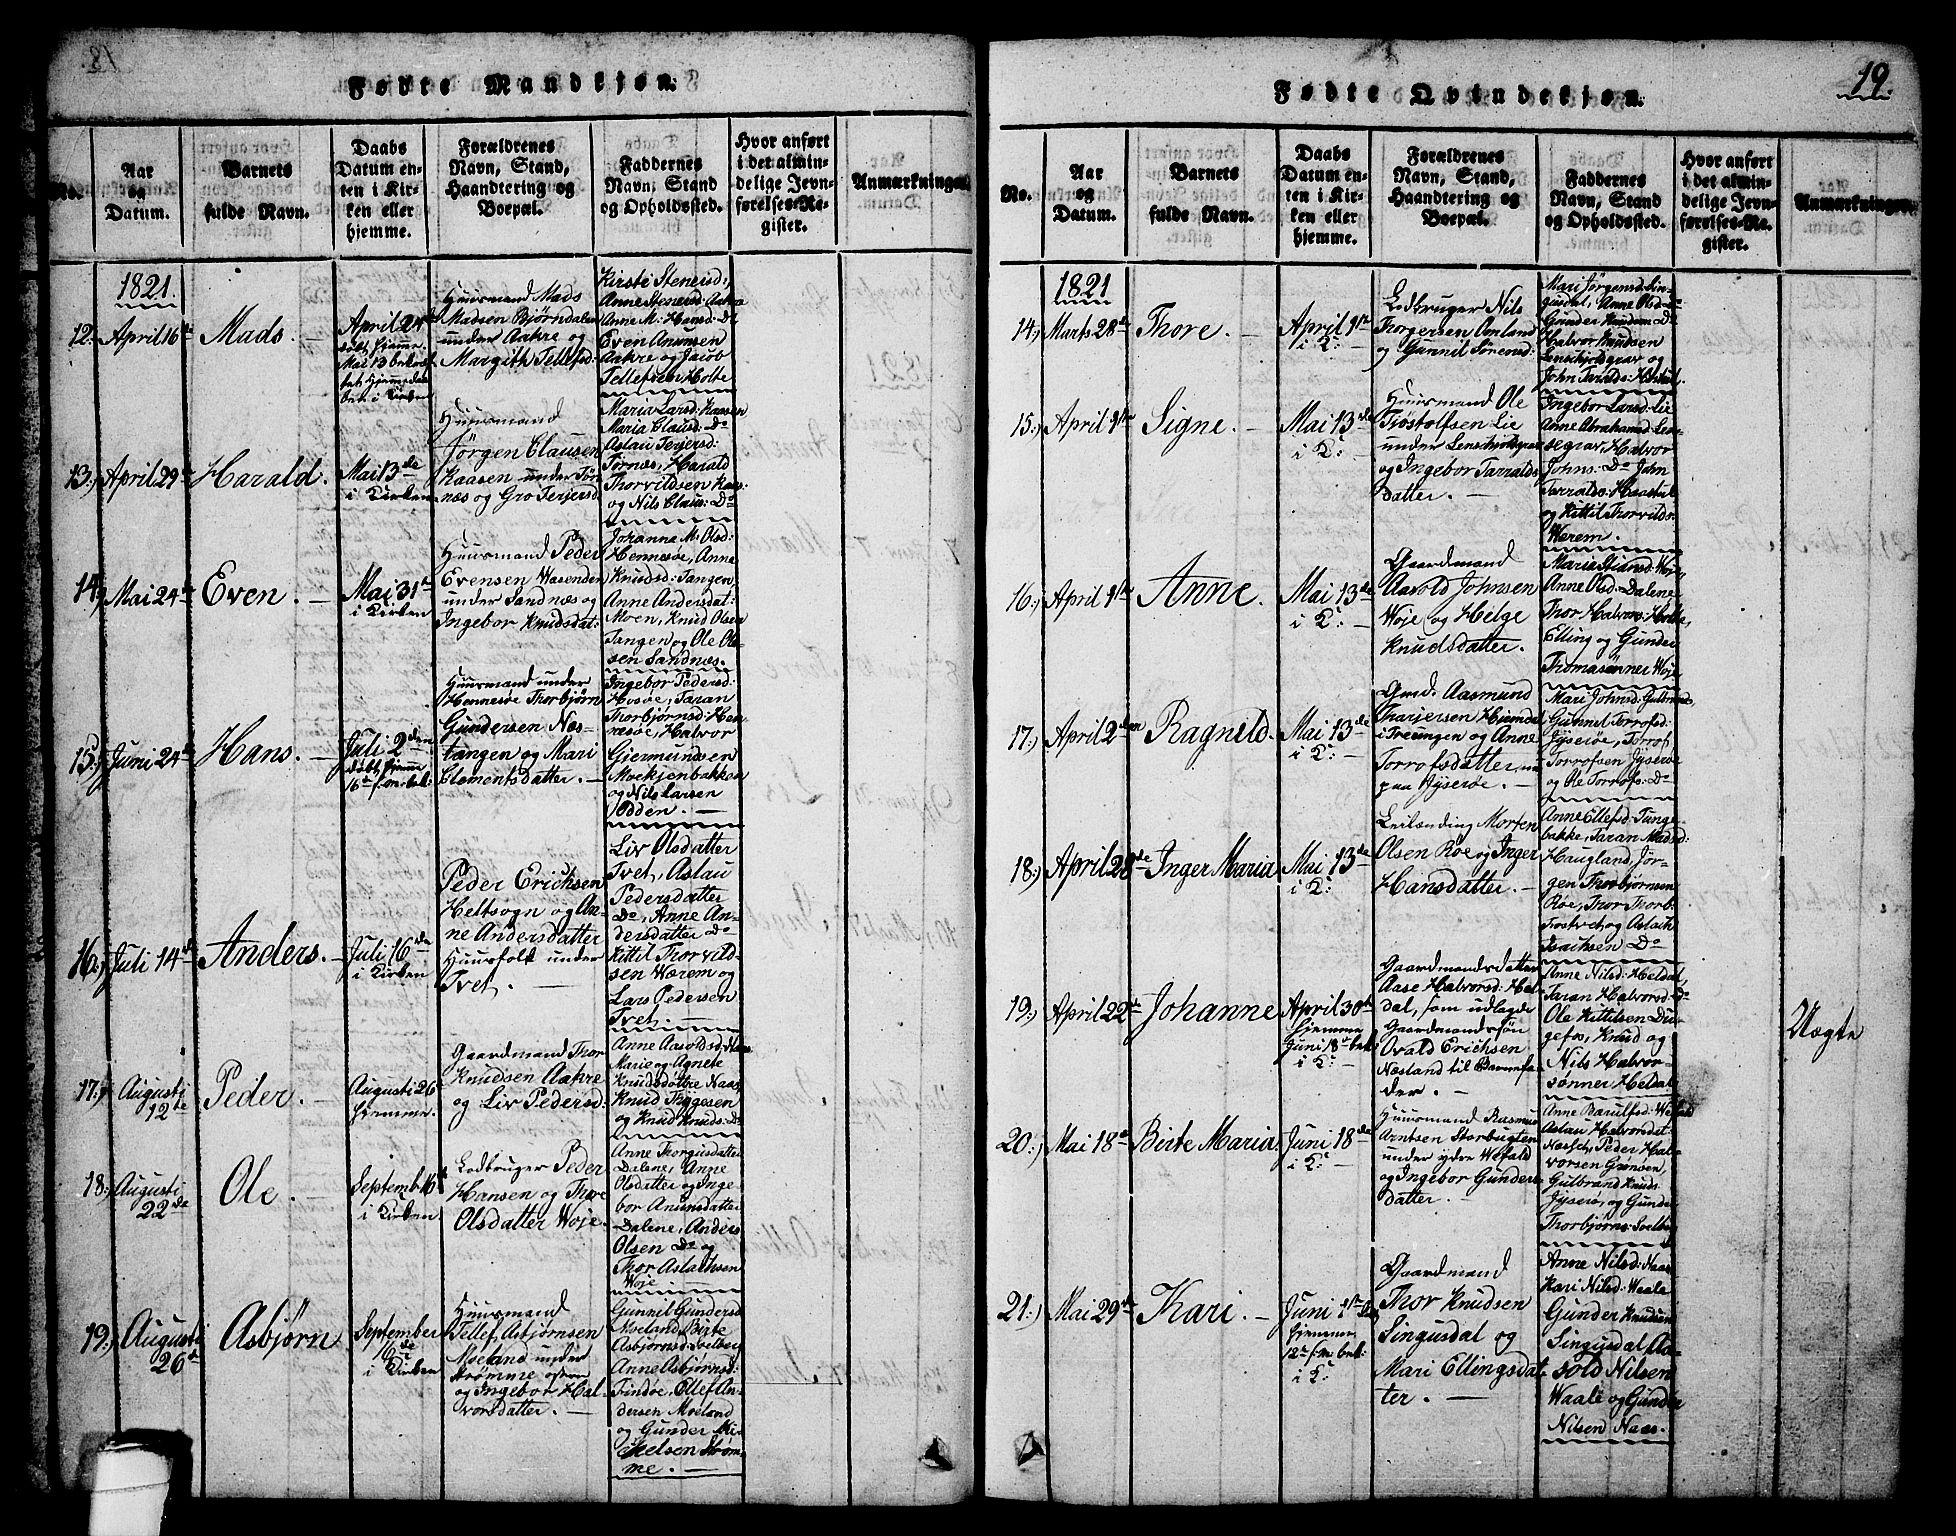 18.
Fødte Mandkjøn.
No.
Aar
og
Datum.
Barnets
fulde Navn.
Daabs
Datum en-
ten i Kir-
ken eller
hjemme.
Forældrenes
Navn, Stand,
Haandtering og
Boepæl.
Faddernes
Navn, Stand
og Opholdssted.
Hvor anført
i det almin-
delige Jevn-
førelses-Re-
gister.
Anmærkninger.
1821
12. April 16de
Mads. —
April 24de
døbt hjemme
Mai 13 bekræf-
tet hjemmedaa-
ben i Kirken
Huusmand Mads
Madsen Bjørndalen
under Aakre og
Margith Tellefsd:
Kirsti Stenersd:,
Anne Stenersd: Aakre
Anne M: Hansd: Do
Even Anunsen
Aakre og Jacob
Tellefsen Holte
13.) April 29de
Harald.
Mai 13de
i Kirken
Huusmand
Jørgen Clausen
Kaasen under Tør-
næs og Gro Terjersd
Maria Larsd: Kaasen
Maria Clausd: Do
Aslau Terjersd:
Tørnæs, Harald
Thorvildsen Kaas:
og Nils Claus: Do
14.) Mai 24de
Even —
Mai 31te
i Kirken
Huusmand Peder
Evensen Wasenden
under Sandnæs og
Ingebor Knudsdat:
Johanna M: Olsd:
Hennesøe, Anne
Knudsd: Tangen
Anne Andersdat:
Moen, Knud Olsen
Tangen og Ole Ol-
sen Sandnæs.
15.) Juni 24de
Hans. —
Juli 2den
døbt hjemme
16de
Huusmand under
Hennesøe Thorbjørn
Gundersen Næs-
tangen og Mari
Clementsdatter. —
Ingebor Pedersd:
Hosøe, Taran
Thorbjørnsd: Hen-
nesøe, Halvor
Gjermundsen
Moekjenbakken
og Nils Larsen
Odden. —
16.) Juli 14de
Anders. —
Juli 16de
i Kirken
Peder Erichsen
Heltsogn og An-
ne Andersdatter
Huusfolk under
Tvet. —
Liv Olsdatter
Tvet, Aslau
Pedersdatter
Do, Anne An-
dersdatter Do
Kittil Thorvild-
sen Wærem og
Lars Pedersen
Tvet. —
17.) Augusti
12te
Peder. —
Augusti 26
hjemme.
Gaardmand Thor
Knudsen Aakre
og Liv Pedersd:
Anne Aasoldsd: Naas
Marie og Agnete
Knudsdøttre Naas
Knud Thygesen
og Knud Knuds: Do
18.) Augusti
22de
Ole. —
Septemb 16de
i Kirken.
Lodbruger Peder
Hansen og Thore
Olsdatter Woje.
Anne Thorgusdatter
Dalene, Anne
Olsdatter og Inge-
bor Anunsdatter
Dalene, Anders
Olsen Do og
Thor Aslachsen
Woje. —
19.) Augusti
26de
Asbjørn
September
16de
i Kirken
Huusmand
Tellef Asbjørnsen
Moeland under
Strømme
og Ingebor Hal-
vorsdatter. —
Gunnil Gundersd
Moeland Birte
Asbjørnsd: Svelberg
Anne Asbjørnsd:
Findøe, Ellef An-
dersen Moeland
og Gunder Mi-
chelsen Strøm-
me. —
19.
Fødte Qvindekjøn.
No.
Aar
og
Datum.
Barnets
fulde Navn.
Daabs
Datum en-
ten i Kir-
ken eller
hjemme.
Forældrenes
Navn, Stand,
Haandtering og
Boepæl.
Faddernes
Navn, Stand
og Opholdssted.
Hvor anført
i det almin-
delige Jevn-
førelses-Re-
gister.
Anmærkninger.
1821
14.) Marts 28de
Thore. —
April 1ste
i K: —
Lodbruger Nils
Thorgersen Omland
og Gunnil Sørensd:
Mari Jørgensd: Sin-
gusdal, Anne Olsd: Do
Gunder Knudsen Do
Halvor Knudsen
og
John Taralds:
15.) April 1ste
Signe. —
Mai 13de
i K: —
Huusmand Ole
Tjøstolfsen Lie
under
og Ingebor Tarralds-
datter. —
Ingebor Larsd: Lie
Anne Abrahamsd: Len-
segrav, Halvor
Johns: Do John
Tarralds:
og Kittil Thorvilds:
Wærem.
16.) April 1ste
Anne.
Mai 13de
i K: —
Gaardmand
Aasold Johnsen
Woje og Helge
Knudsdatter.
Marie Stiansd: Woje
Anne Olsd: Dalene
Thor Halvors: Holte,
Elling og Gunder
Thomasønner Woje
17.) April 2den
Ragnild.
Mai 13de
i K: —
Gmd. Aasmund
Tharjersen Hjemdal
i Treungen og Anne
Torrofsdatter,
paa Jyserøe. —
Mari Johnsd:
Gunnil Torrofsd:
Jyserøe, Torrof
Torrofsen Jyserøe
og Ole Torrofs: Do
18.) April 28de
Inger Maria
Mai 13de
i K: —
Leilænding Morten
Olsen Røe og Inger
Hansdatter. —
Anne Ellefsd: Tange-
bakke, Taran Madsd:
Haugland, Jør-
gen Thorbjørnsen
Røe, Thor Thorb:
Frostvet, og Aslach
Isachsen Do
19.) April 22de
Johanne
April 30te
hjemme
Juni 18de bek:
i K: —
Gaardmandsdatter
Aase Halvorsd: Hel-
dal, som udlagde
Gaardmandssøn
Ovald Erichsen
Næsland til Barnefa-
der. —
Anne Nilsd: Heldal,
Taran Halvorsd: Do
Ole Kittilsen Du-
gefos, Knud og
Nils Halvor-
sønner Heldal
Uægte
20.) Mai 18de
Birte Maria
Juni 18de
i K: —
Huusmand Rasmus
Arntsen Storbugten
under ydre Wefald
og Ingebor Gunders-
datter. —
Anne Baruulfsd: Wefald
Aslau Halvorsdat:
Næslet, Peder Hal-
vorsen Grønsen,
Gulbrand Knuds
Jyserøe, og Gunder
Thorbjørns: Svelberg
21.) Mai 29de
Kari. —
Juni 1ste
hjemme
12te bek:
i K:
Gaardmand
Thor Knudsen
Singusdal og
Mari Ellingsdat-
ter. —
Anne Nilsd: Naas
Kari Nilsd: Waale
Gunder Knudsen
Singusdal, Aa-
sold Nilsen
Waale og Gunder
Nilsen Naas.